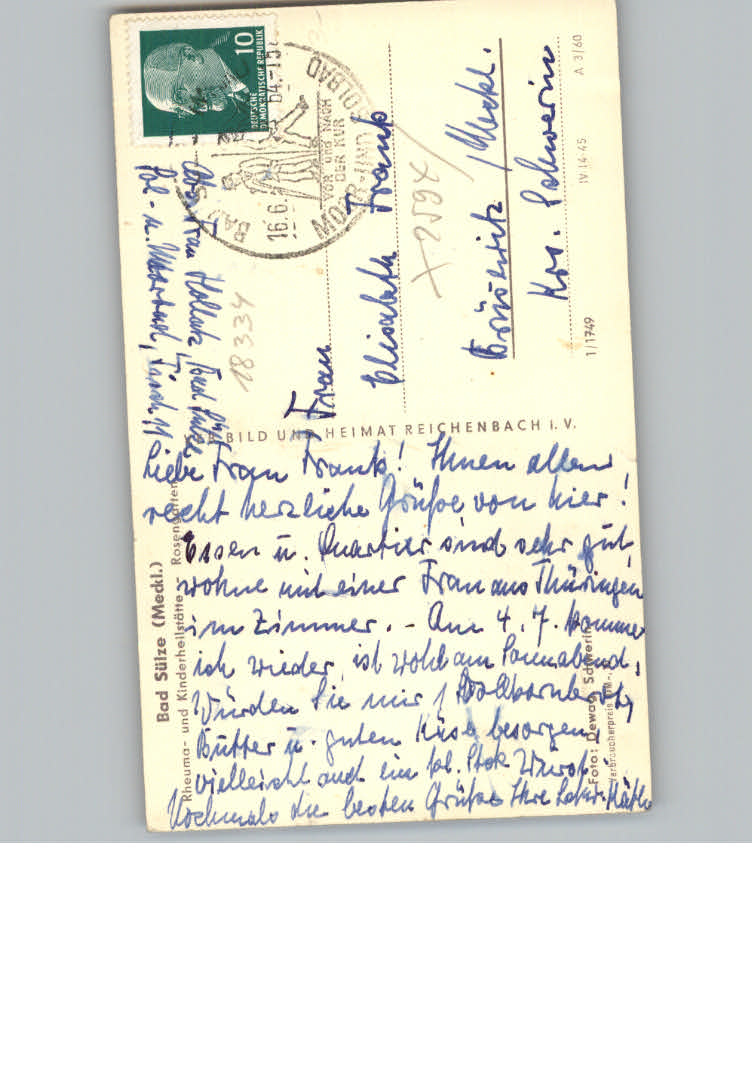 10
DEUTSCHE
DEMOKRATISCHE REPUBLIK
BAD
MOOR- UND SOLBAD
VOR UND NACH
DER KUR
16.6. 64.-15
Abs. Frau Bad Sülze
Sol- u. Moorbad,
18334
Frau
Elisabeth Frank
x 2594
Brüsewitz /Meckl.
Krs. Schwerin
IV 14-45 A 3/60
1/1749
BILD UND HEIMAT REICHENBACH i. V.
Bad Sülze (Meckl.)
Rheuma- und Kinderheilstätte - Rosengarten
Liebe Frau Frank! Ihnen allen
recht herzliche Grüße von hier!
Essen u. Quartier sind sehr gut,
wohne mit einer Frau aus Thüringen
im Zimmer. - Am 4. 7. komme
ich wieder, ist wohl am Sonnabend.
Würden Sie mir 1 Vollkornbrot,
Butter u. guten Käse besorgen,
vielleicht auch ein Stck Wurst.
Nochmals die besten Grüße Ihre
Foto: Dewag, Schwerin
Verbraucherpreis